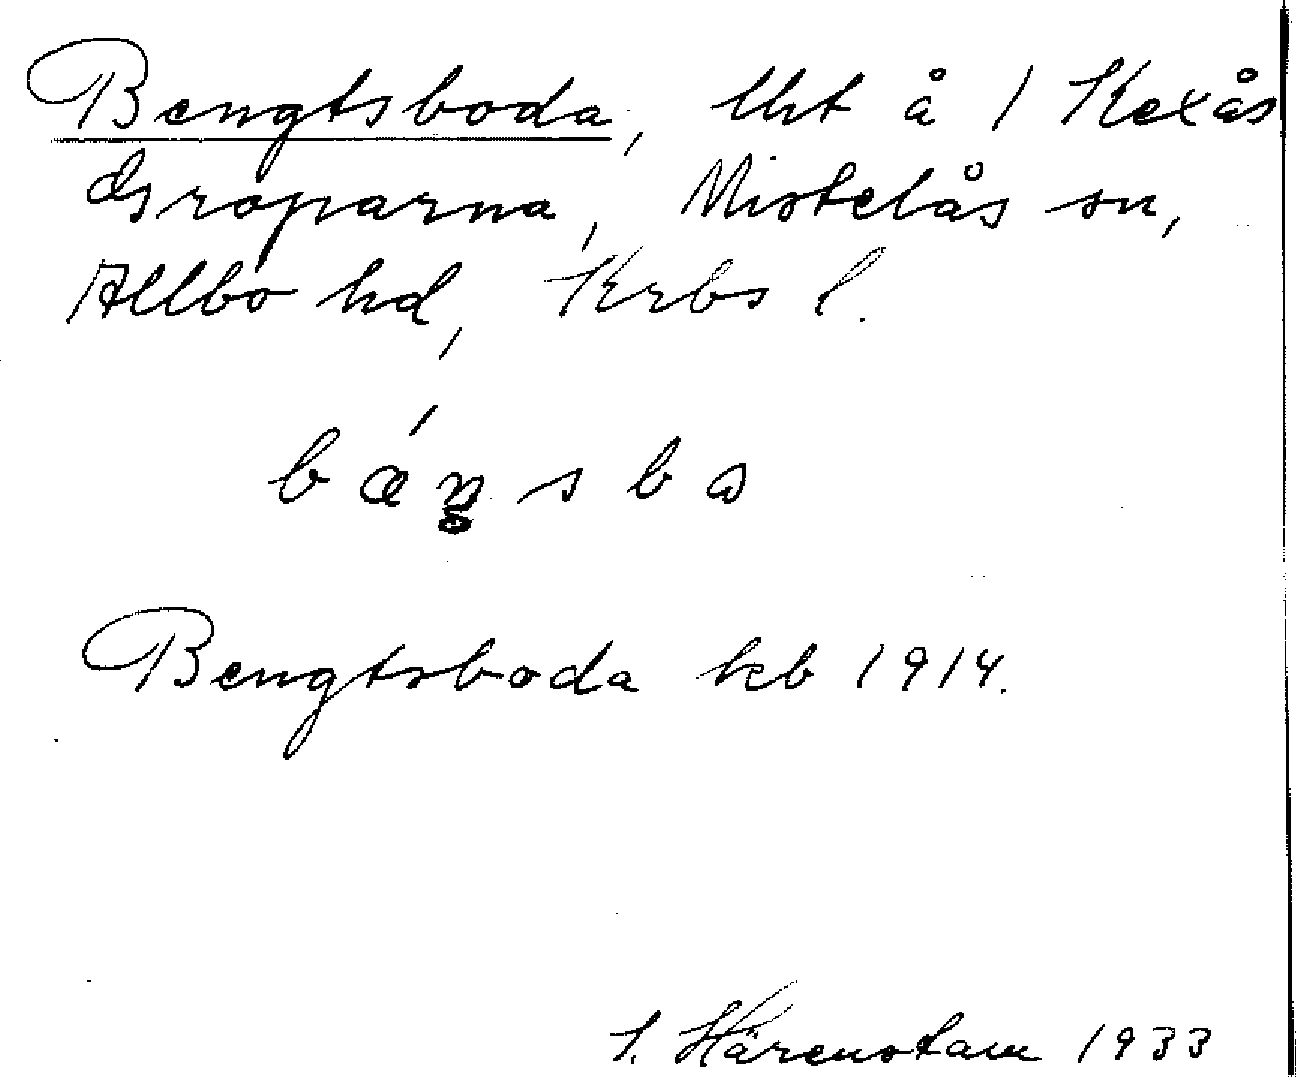 Bengtsboda, lht å 1 Kexås
Groparna, Mistelås sn,
Allbo hd, Krbs l.
Bengtsboda kb 1914.
Härenstam 1933